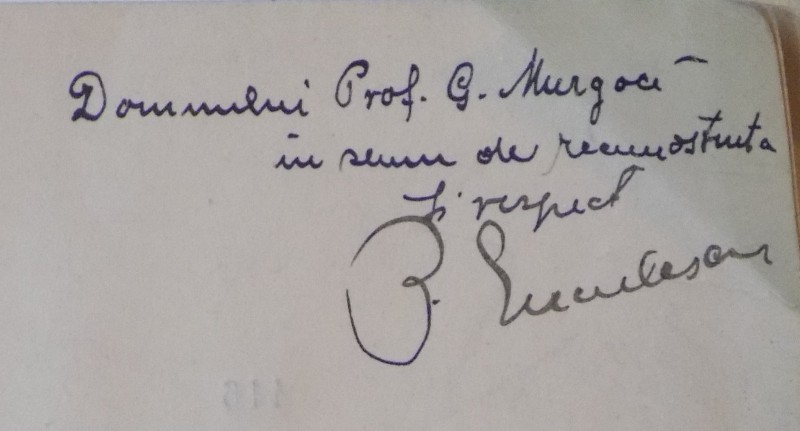 Domnului Prof. G. Murgoci
in semn de recunostinta
si respect
P. Enculescu